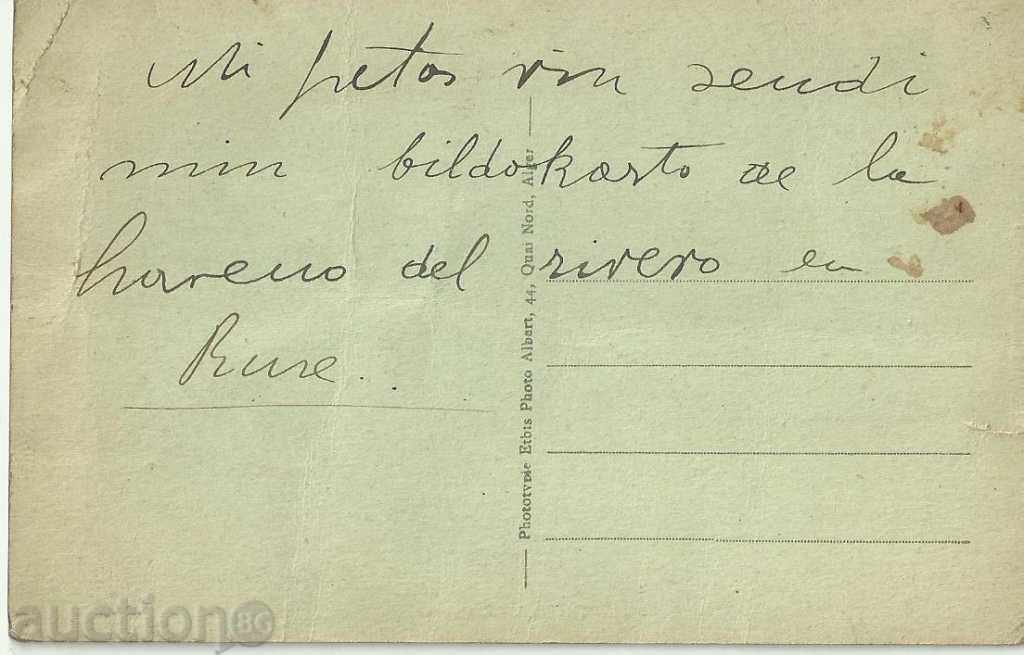 Mi petas vin sendi
min bildokarto de la
haveno del rivero en
Ruse.
Phototypie Etbis Photo Albert, 44, Quai Nord, Alger
auction BG